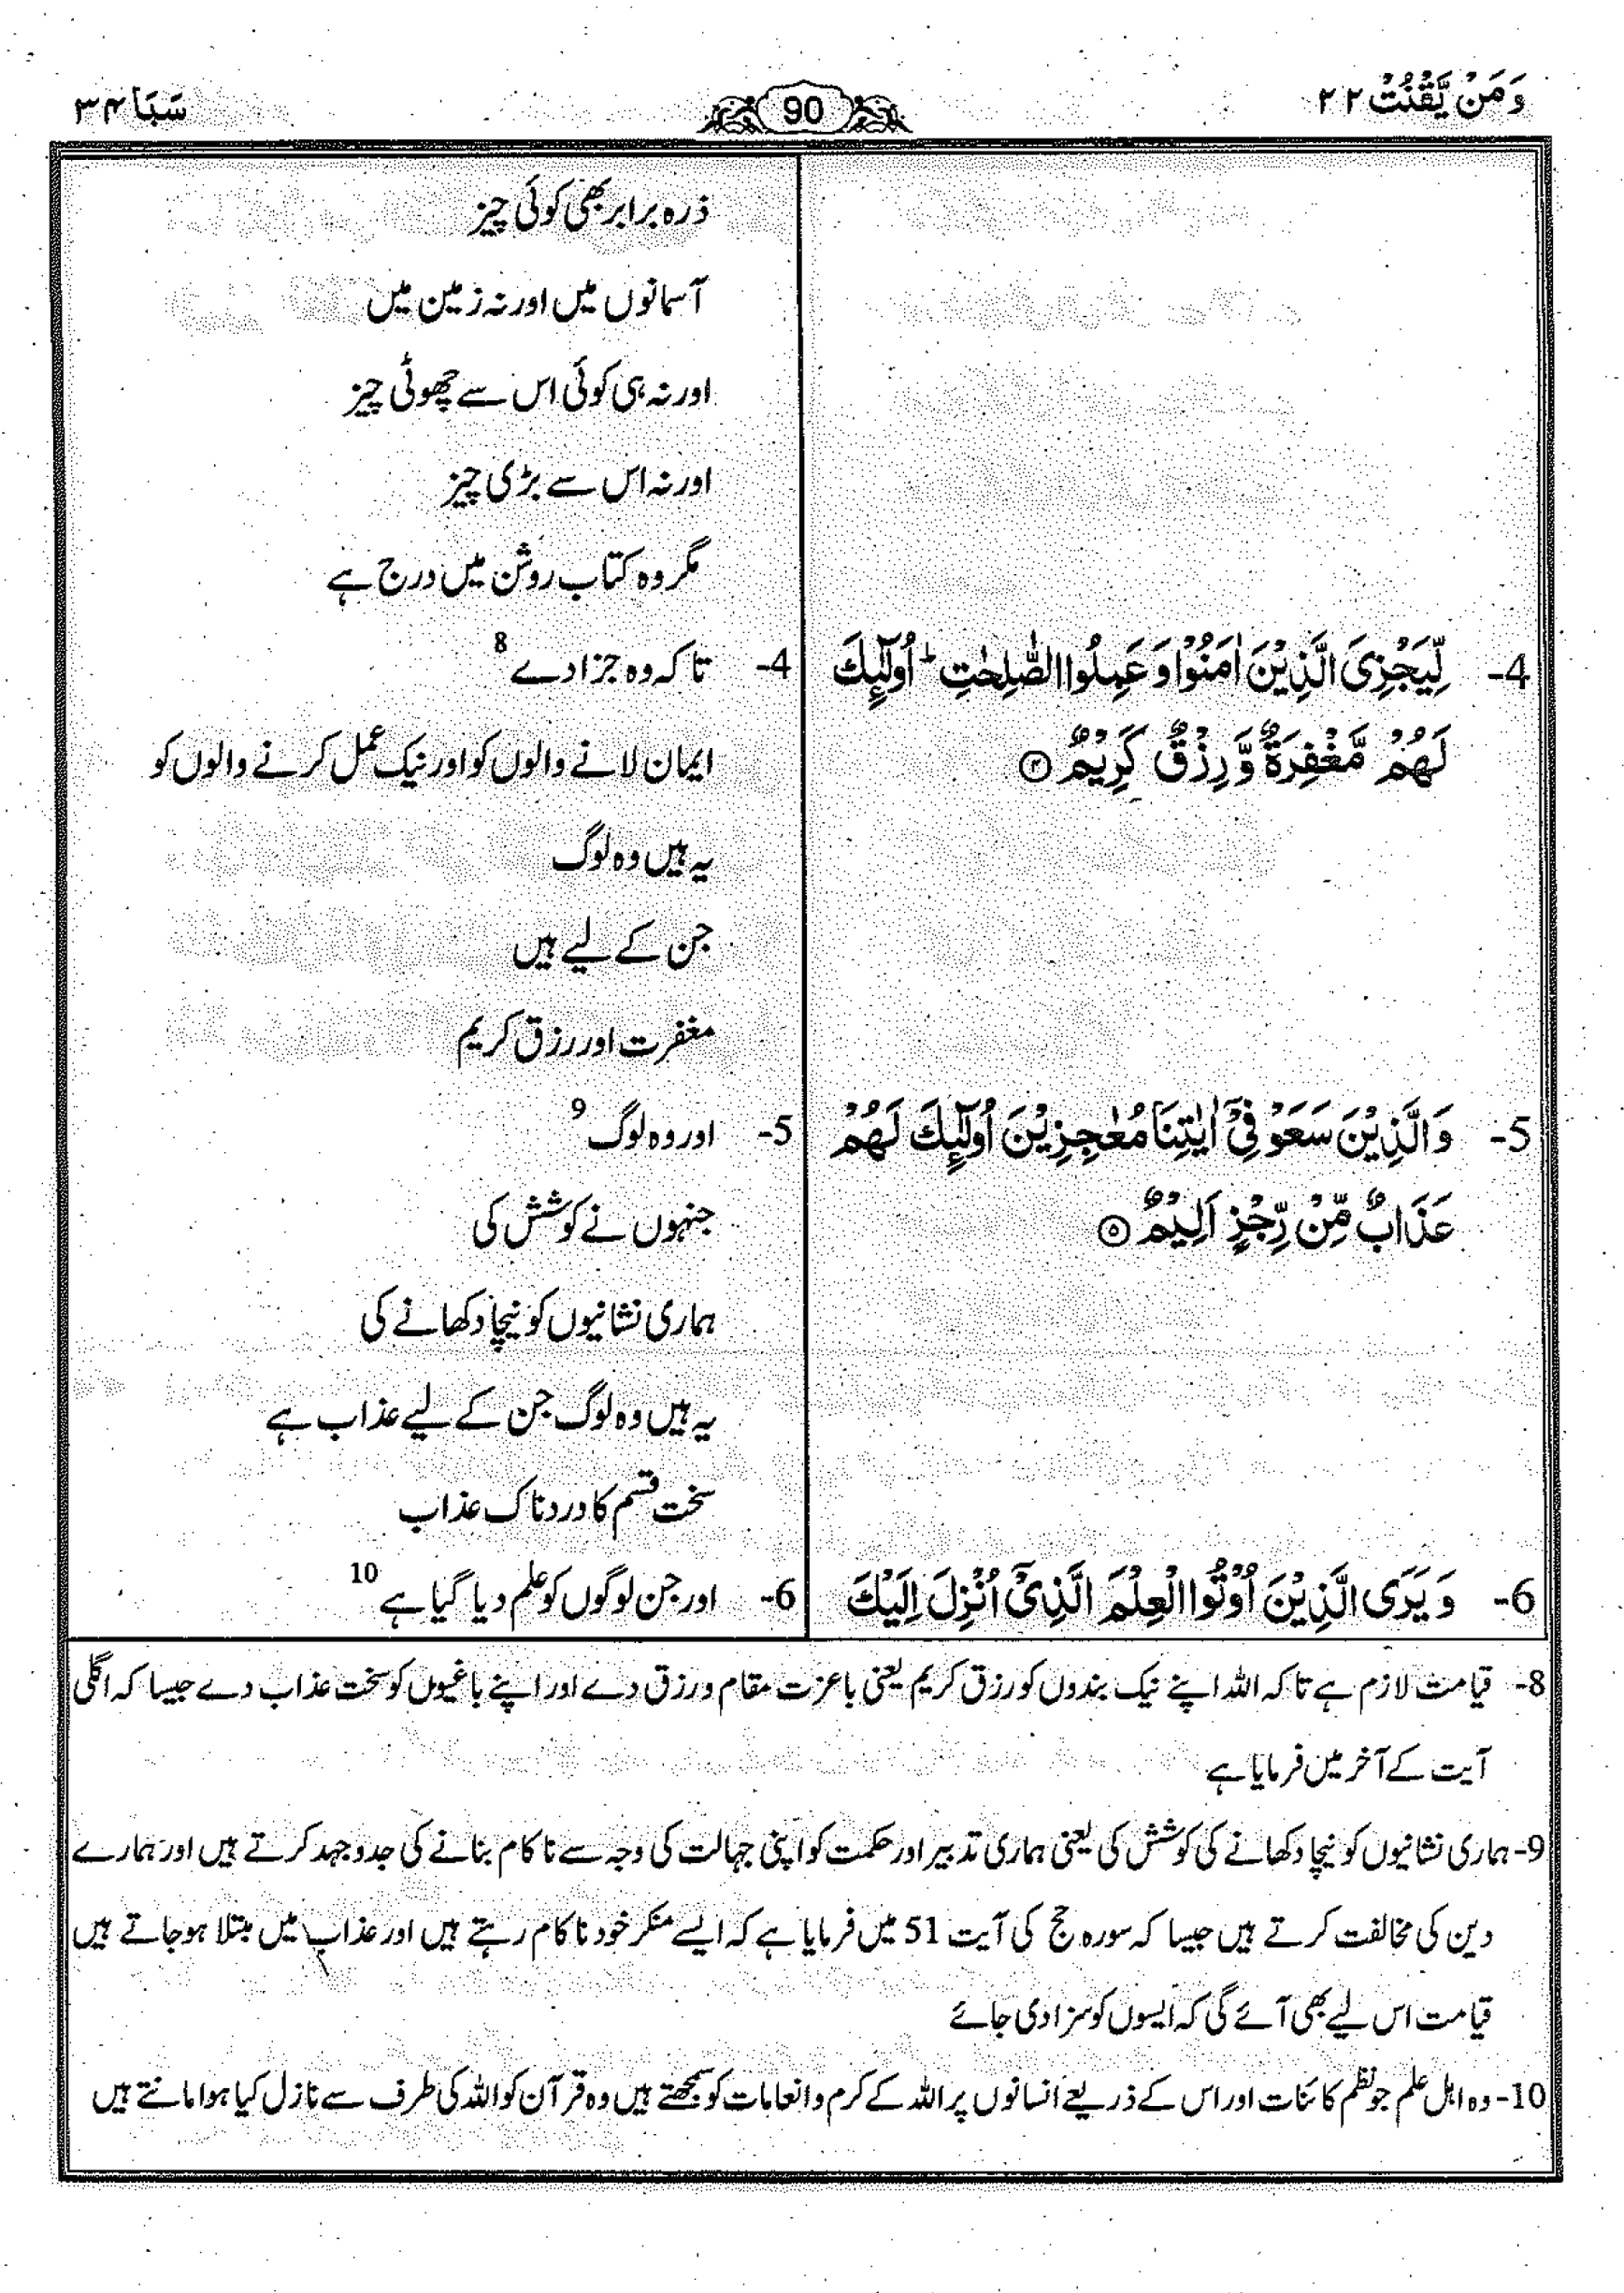 وَمَنْ يَّقْنُتْ ۲۲
90
سَبَا ۳۴
ذرہ برابر بھی کوئی چیز
آسمانوں میں اور نہ زمین میں
اور نہ ہی کوئی اس سے چھوٹی چیز
اور نہ اس سے بڑی چیز
مگر وہ کتاب روشن میں درج ہے
4- لِّيَجْزِىَ الَّذِيْنَ اٰمَنُوْا وَ عَمِلُوا الصّٰلِحٰتِ ؕ اُولٰٓئِكَ
لَهُمْ مَّغْفِرَةٌ وَّ رِزْقٌ كَرِيْمٌ ۴
4- تاکہ وہ جزا دے 8
ایمان لانے والوں کو اور نیک عمل کرنے والوں کو
یہ ہیں وہ لوگ
جن کے لیے ہیں
مغفرت اور رزق کریم
5- وَ الَّذِيْنَ سَعَوْ فِىْۤ اٰيٰتِنَا مُعٰجِزِيْنَ اُولٰٓئِكَ لَهُمْ
عَذَابٌ مِّنْ رِّجْزٍ اَلِيْمٌ ۵
5- اور وہ لوگ 9
جنہوں نے کوشش کی
ہماری نشانیوں کو نیچا دکھانے کی
یہ ہیں وہ لوگ جن کے لیے عذاب ہے
سخت قسم کا دردناک عذاب
6- وَ يَرَى الَّذِيْنَ اُوْتُوا الْعِلْمَ الَّذِىْۤ اُنْزِلَ اِلَيْكَ
6- اور جن لوگوں کو علم دیا گیا ہے 10
8- قیامت لازم ہے تاکہ اللہ اپنے نیک بندوں کو رزق کریم یعنی باعزت مقام و رزق دے اور اپنے باغیوں کو سخت عذاب دے جیسا کہ اگلی
آیت کے آخر میں فرمایا ہے
9- ہماری نشانیوں کو نیچا دکھانے کی کوشش کی یعنی ہماری تدبیر اور حکمت کو اپنی جہالت کی وجہ سے ناکام بنانے کی جدوجہد کرتے ہیں اور ہمارے
دین کی مخالفت کرتے ہیں جیسا کہ سورہ حج کی آیت 51 میں فرمایا ہے کہ ایسے منکر خود ناکام رہتے ہیں اور عذاب میں مبتلا ہو جاتے ہیں
قیامت اس لیے بھی آئے گی کہ ایسوں کو سزا دی جائے
10- وہ اہل علم جو نظم کائنات اور اس کے ذریعے انسانوں پر اللہ کے کرم و انعامات کو سمجھتے ہیں وہ قرآن کو اللہ کی طرف سے نازل کیا ہوا مانتے ہیں